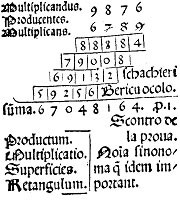 Multiplicandus. 9 8 7 6
Producentes.
Multiplicans. 6 7 8 9
8 8 8 8 4
7 9 0 0 8
6 9 1 3 2 schachieri
5 9 2 5 6 Bericuocolo.
sũma. 6 7 0 4 8 1 6 4. p.1.
Scontro de
la proua.
Productum.
Multiplicatio.
Superficies.
Retangulum.
Noĩa sinono
ma q̃ idem im
portant.